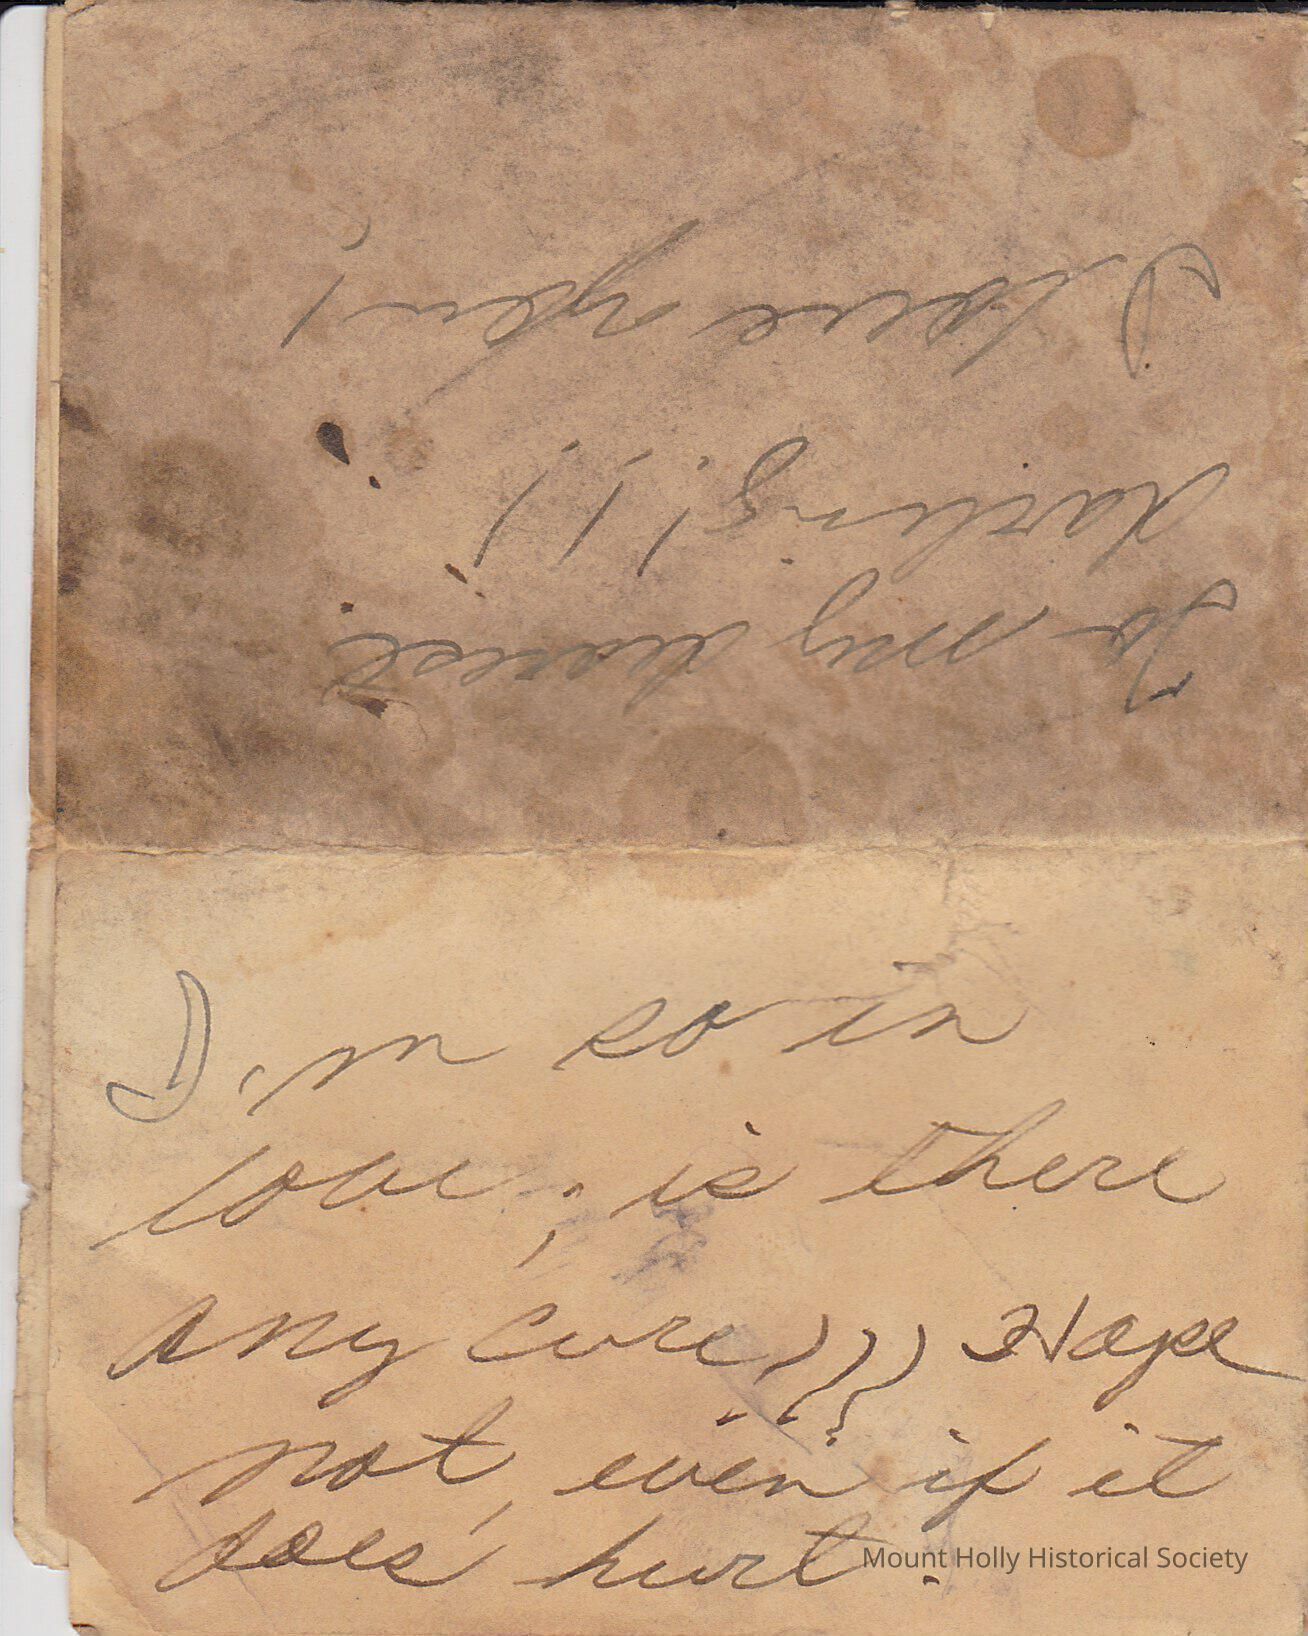 To my dearest
darling!!!!
I love you!
I'm so in
love; is there
any cure??? Hope
not, even if it
does hurt.
Mount Holly Historical Society